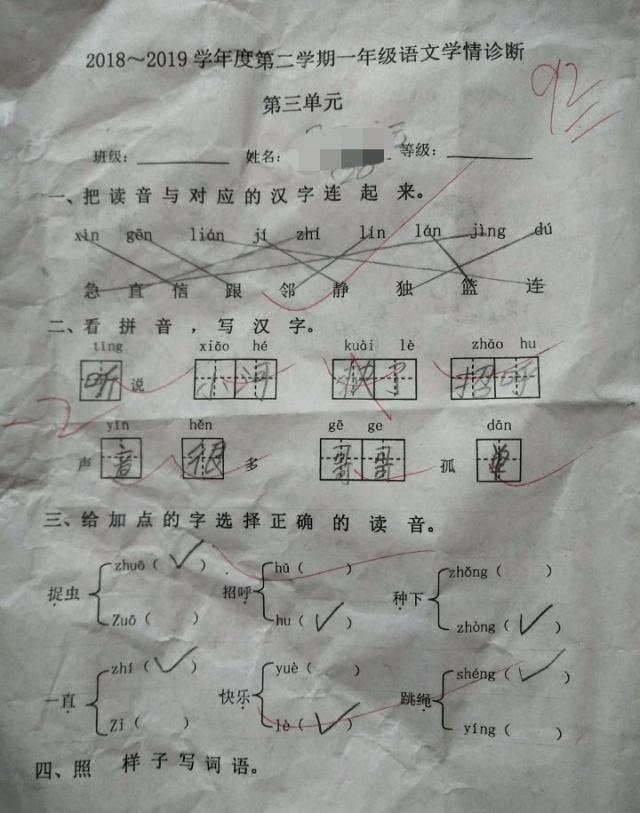 2018～2019 学年度第二学期一年级语文学情诊断
92
第三单元
班级： 姓名： 等级：
一、把读音与对应的汉字连起来。
xìn gēn lián jí zhí lín lán jìng dú
急 直 信 跟 邻 静 独 篮 连
二、看拼音，写汉字。
tīng xiǎo hé kuài lè zhāo hu
听 说 小 河 快 乐 招 呼
-2
yīn hěn gē ge dān
声 音 很 多 哥 哥 孤 单
三、给加点的字选择正确的读音。
zhuō（✓） hū（ ） zhǒng（ ）
捉虫 招呼 种下
Zuō（ ） hu（✓） zhòng（✓）
zhí（✓） yuè（ ） shéng（✓）
一直 快乐 跳绳
Zí（ ） lè（✓） yíng（ ）
四、照样子写词语。